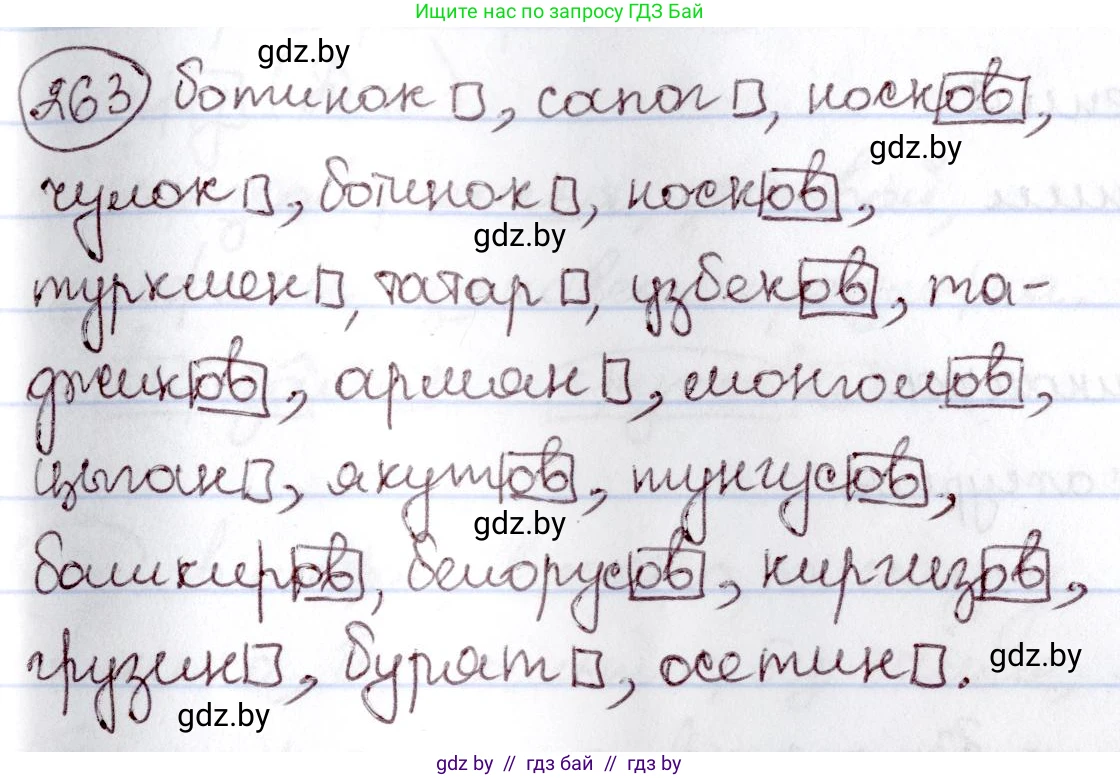 Ищите нас по запросу ГДЗ Бай
gdz.by
263 ботинок, сапог, носков,
gdz.by
чулок, ботинок, носков,
gdz.by
туркмен, татар, узбеков, та-
джиков, армян, монголов,
цыган, якутов, тунгусов,
gdz.by
башкиров, белорусов, киргизов,
грузин, бурят, осетин.
gdz.by
gdz.by
gdz.by // гдз бай // гдз by